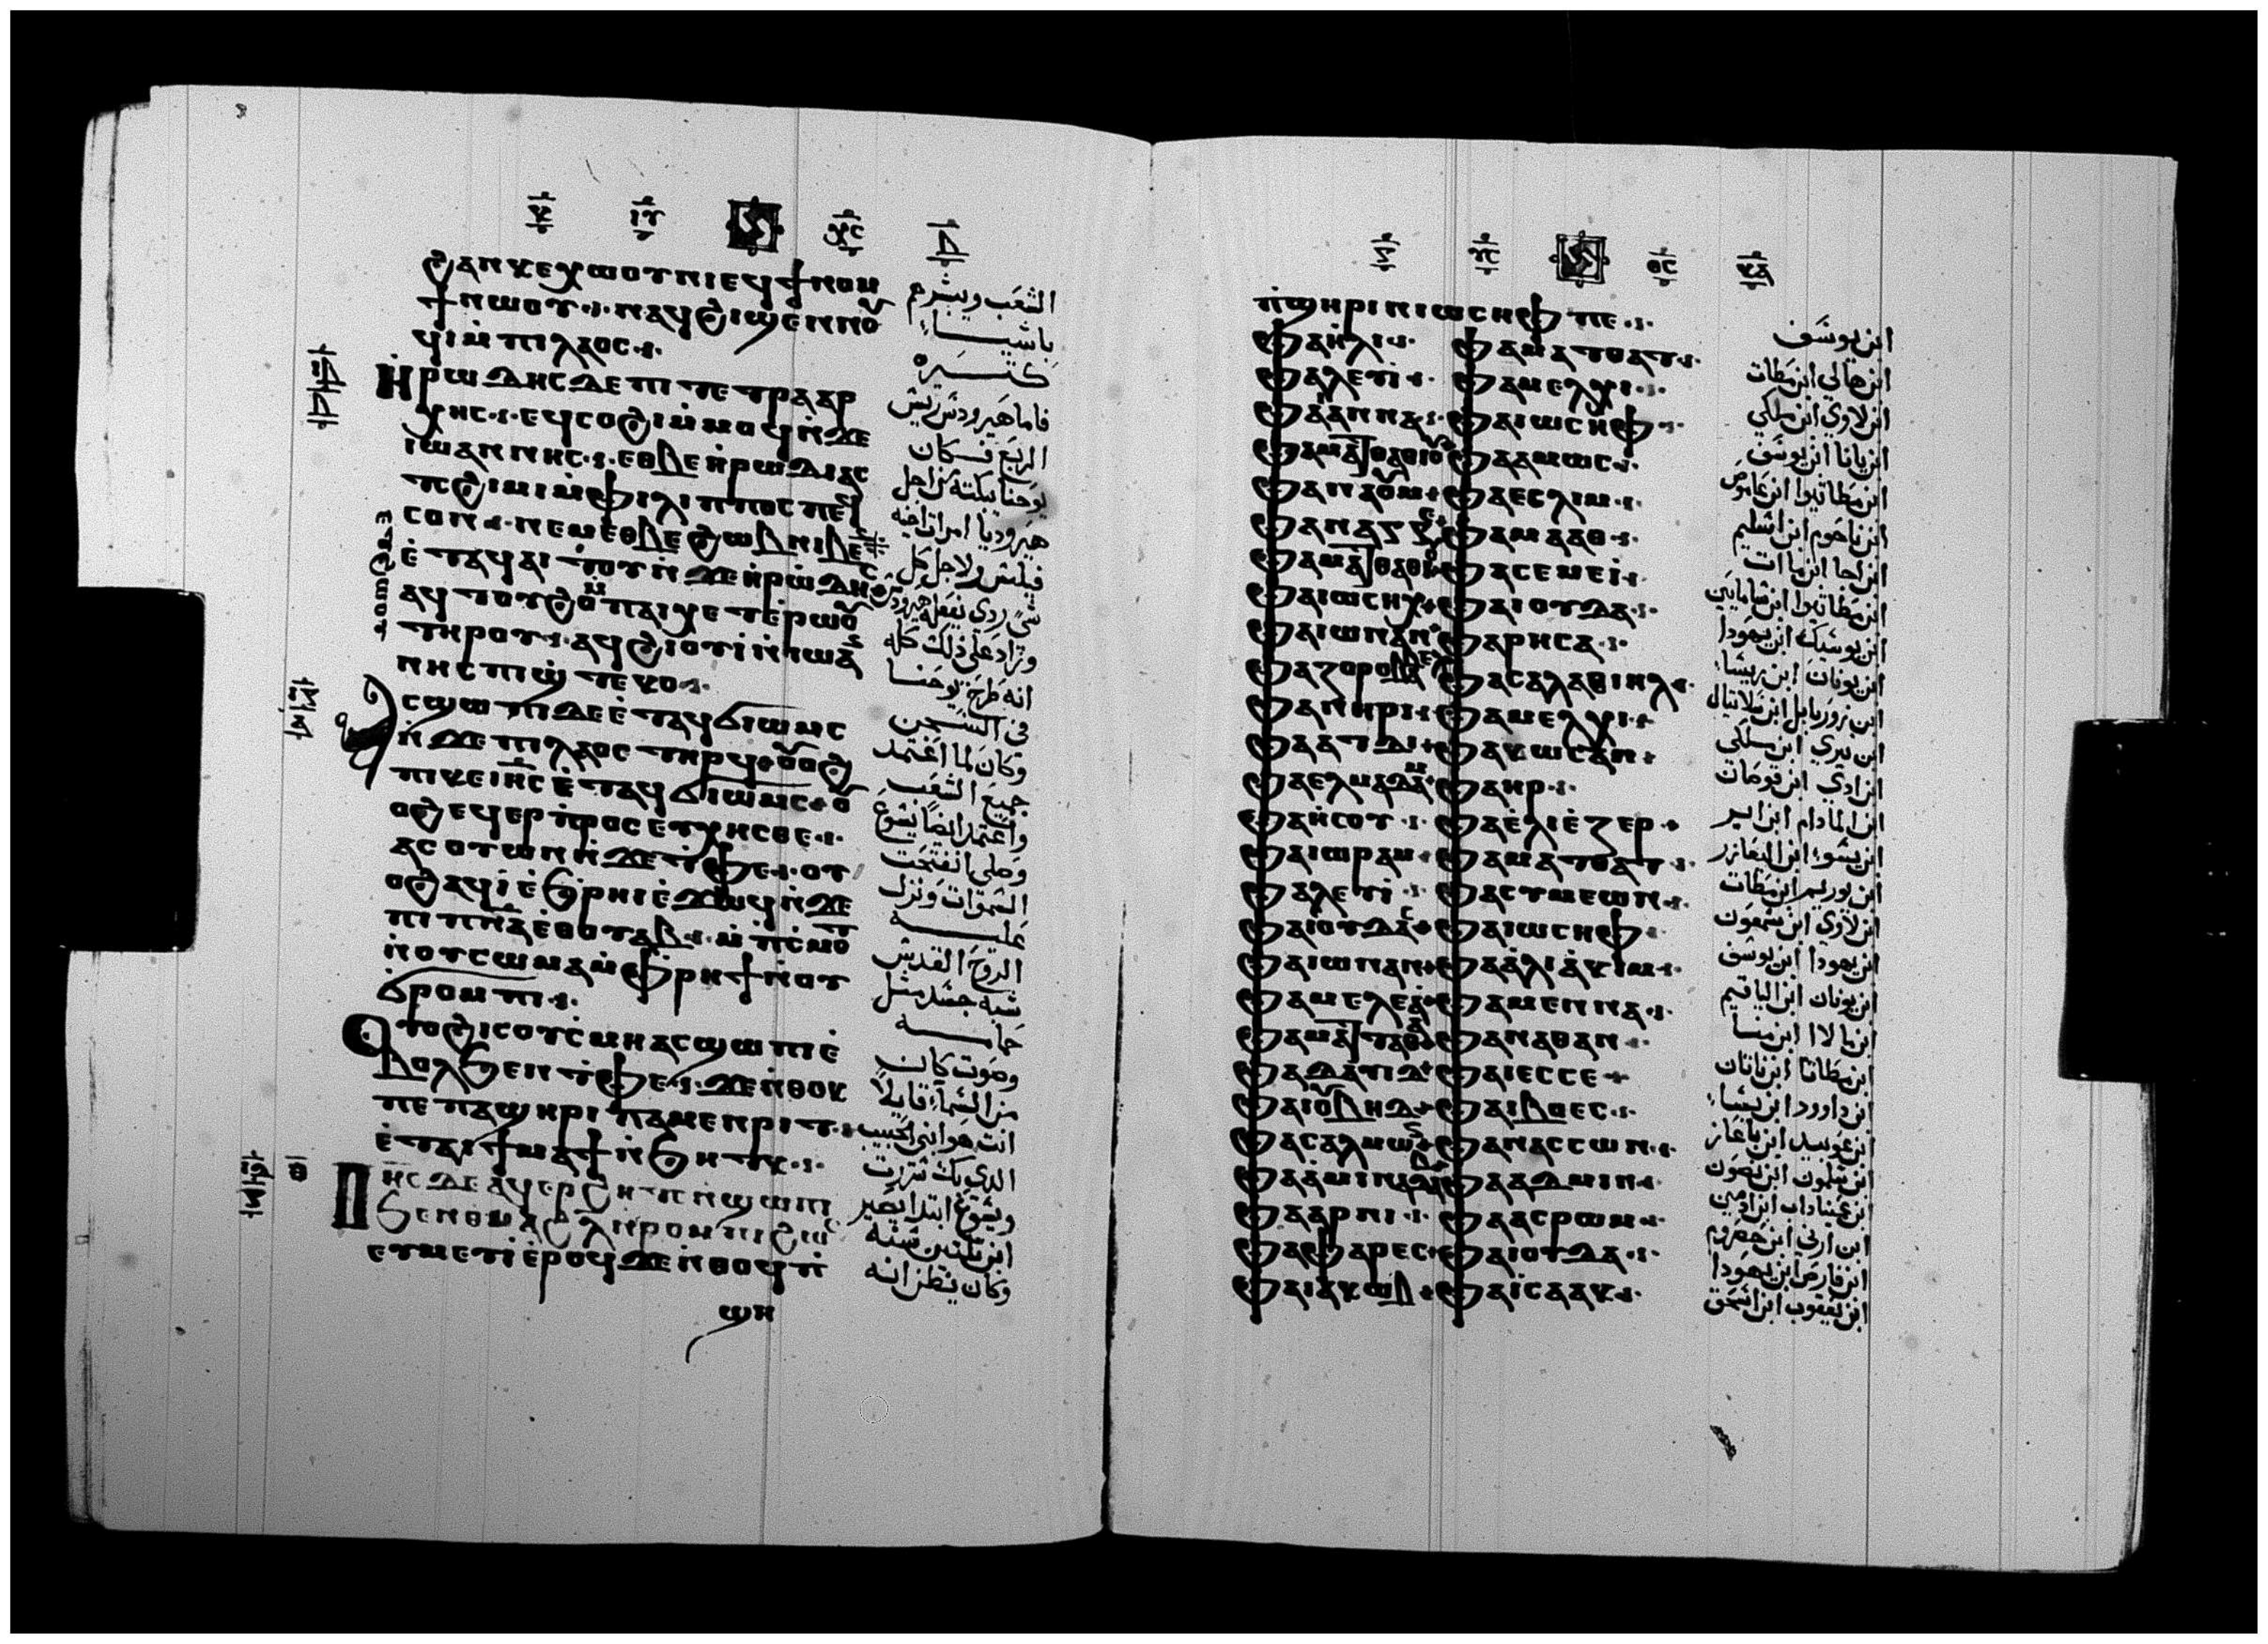 ϩⲁⲛⲕⲉⲭⲱⲟⲩⲛⲓ ⲉϥϯⲛⲟⲙ
ϯⲛⲱⲟⲩ ⲛⲁϥϩⲓϣⲉⲛⲛⲟⲩ
ϥⲓ ⲙ̇ⲡⲓⲗⲁⲟⲥ
ⲏⲣⲱⲇⲏⲥ ⲇⲉ ⲡⲓⲧⲉⲧⲣⲁⲁⲣ
ⲭⲏⲥ ⲉϥⲥⲟϩⲓ ⲙ̇ⲙⲟϥ ⲛ̇ϫⲉ
ⲓⲱⲁⲛⲛⲏⲥ ⲉⲑⲃⲉ ⲏⲣⲱⲇⲓⲁⲥ
ⲧⲥϩⲓⲙⲓ ⲙ̇ⲫⲓⲗⲓⲡⲡⲟⲥ ⲡⲉϥ
ⲥⲟⲛ ⲛⲉⲙ ⲉⲑⲃⲉ ϩⲱⲃ ⲛⲓⲃⲉⲛ
ⲉ̇ⲧⲁϥⲁⲓⲧⲟⲩ ⲛ̇ϫⲉ ⲏⲣⲱⲇⲏⲥ
ⲁϥⲧⲟⲩϩⲟ ⲙ̇ⲡⲁⲓⲭⲉⲧ ⲉ̇ⲣⲱⲟⲩ
ⲧⲏⲣⲟⲩ ⲁϥϩⲓⲟⲩⲓ̇ ⲛ̇ⲓⲱⲁⲛ
ⲛⲏⲥ ⲡⲓϣⲧⲉⲕⲟ
ⲁⲥϣⲱⲡⲓ ⲇⲉ ⲉ̇ⲧⲁϥϭⲓⲱⲙⲥ
ⲛ̇ϫⲉ ⲡⲓⲗⲁⲟⲥ ⲧⲏⲣϥ ⲟⲩⲟϩ
ⲡⲓⲕⲉⲓⲏⲥ ⲉ̇ⲧⲁϥϭⲓⲱⲙⲥ ⲟⲩ
ⲟϩ ⲉϥⲉⲣⲡⲣⲟⲥⲉⲩⲭⲏⲥⲑⲉ
ⲁⲥⲟⲩⲱⲛ ⲛ̇ϫⲉ ⲧ̇ⲫⲉ ⲟⲩ
ⲟϩ ⲁϥⲓ̇ ⲉ̇ϧⲣⲏⲓ ⲉ̇ϫⲱϥ ⲛ̇ϫⲉ
ⲡⲓⲡⲛⲁ ⲉ̇ⲑⲟⲩⲁⲃ ⲙ̇ⲡ̇ⲥⲙⲟⲧ
ⲛ̇ⲟⲩⲥⲱⲙⲁ ⲙ̇ⲫⲣⲏϯ ⲛ̇ⲟⲩ
ϭⲣⲟⲙⲡⲓ
ⲟⲩⲟϩ ⲓⲥ ⲟⲩⲥ̇ⲙⲏ ⲁⲥϣⲱⲡⲓ ⲉ̇
ⲃⲟⲗϧⲉⲛ ⲧ̇ⲫⲉ ϫⲉ ⲛ̇ⲑⲟⲕ
ⲡⲉ ⲡⲁϣⲏⲣⲓ ⲡⲁⲙⲉⲛⲣⲓⲧ
ⲉ̇ⲧⲁⲓϯⲙⲁϯ ⲛ̇ϧⲏⲧⲕ
ⲓⲏⲥ ⲇⲉ ⲁϥⲉⲣϩⲏⲧⲥ ⲛ̇ϣⲱⲡⲓ
ϧⲉⲛ ⲑⲙⲁϩ ⲗ̅ ⲛ̇ⲣⲟⲙⲡⲓ ϩⲱⲥ
ⲉⲩⲙⲉⲩⲓ̇ ⲉ̇ⲣⲟϥ ϫⲉ ⲛ̇ⲑⲟϥ ⲡ̇
ϣⲏ
الشعب ويبشرهم
باشيـــا
كثـــيره
فاما هيرودس ريس
الربع فكان
يوحنا يبكته من اجل
هيروديا امراة اخيه
فيلبس ولاجل كل
شي ردي يفعله هيرودس
وزاد على ذلك كله
انه طرح يوحنــا
في السجــن
وكان لما اعتمد
جميع الشعب
واعتمد ايضا يسوع
وصلى انفتحت
السموات ونزل
عليـــه
الروح القدس
شبه جسد مثل
حمامـــه
وصوت كان
من السماء قايلا
انت هو ابني الحبيب
الدي بك سررت
ويسوع ابتدا يصير
ابن تلتين سنه
وكان يظن انه
ⲡ̇ϣⲏⲣⲓ ⲛ̇ⲓⲱⲥⲏⲫ ⲡⲉ
ⲫⲁ ⲏⲗⲓ ⲫⲁ ⲙⲁⲧⲑⲁⲧ
ⲫⲁ ⲗⲉⲩⲓ ⲫⲁ ⲙⲉⲗⲭⲓ
ⲫⲁ ⲁⲛⲛⲁ ⲫⲁ ⲓⲱⲥⲏⲫ
ⲫⲁ ⲙⲁⲧⲑⲁⲑⲓⲟⲩ ⲫⲁ ⲁⲙⲱⲥ
ⲫⲁ ⲛⲁⲟⲩⲙ ⲫⲁ ⲉⲥⲗⲓⲙ
ⲫⲁ ⲛⲁⲅⲅⲉ ⲫⲁ ⲙⲁⲁⲑ
ⲫⲁ ⲙⲁⲧⲑⲁⲑⲓⲟⲩ ⲫⲁ ⲥⲉⲙⲉⲓ̇
ⲫⲁ ⲓⲱⲥⲏⲭ ⲫⲁ ⲓⲟⲩⲇⲁ
ⲫⲁ ⲓⲱⲛⲁⲛ ⲫⲁ ⲣⲏⲥⲁ
ⲫⲁ ⲍⲟⲣⲟⲃⲁⲃⲉⲗ ⲫⲁ ⲥⲁⲗⲁⲑⲓⲏⲗ
ⲫⲁ ⲛⲏⲣⲓ ⲫⲁ ⲙⲉⲗⲭⲓ
ⲫⲁ ⲁⲧⲇⲓ ⲫⲁ ⲕⲱⲥⲁⲙ
ⲫⲁ ⲉⲗⲙⲁⲇⲁⲙ ⲫⲁ ⲏⲣ
ⲫⲁ ⲏⲥⲟⲩ ⲫⲁ ⲉ̇ⲗⲓⲉ̇ⲍⲉⲣ
ⲫⲁ ⲓⲱⲣⲁⲙ ⲫⲁ ⲙⲁⲧⲑⲁⲧ
ⲫⲁ ⲗⲉⲩⲓ ⲫⲁ ⲥⲩⲙⲉⲱⲛ
ⲫⲁ ⲓⲟⲩⲇⲁⲥ ⲫⲁ ⲓⲱⲥⲏⲫ
ⲫⲁ ⲓⲱⲛⲁⲛ ⲫⲁ ⲁⲗⲓⲁⲕⲓⲙ
ⲫⲁ ⲙⲉⲗⲉⲁ ⲫⲁ ⲙⲉⲛⲛⲁ
ⲫⲁ ⲙⲁⲧⲧⲁⲑⲁ ⲫⲁ ⲛⲁⲑⲁⲛ
ⲫⲁ ⲇⲁⲩⲓⲇ ⲫⲁ ⲓⲉⲥⲥⲉ
ⲫⲁ ⲓⲟⲩⲃⲏⲇ ⲫⲁ ⲃⲟⲉⲥ
ⲫⲁ ⲥⲁⲗⲙⲱⲛ ⲫⲁ ⲛⲁⲥⲥⲱⲛ
ⲫⲁ ⲁⲙⲓⲛⲁⲇⲁⲃ ⲫⲁ ⲁⲇⲙⲓⲛ
ⲫⲁ ⲁⲣⲛⲓ ⲫⲁ ⲁⲥⲣⲱⲙ
ⲫⲁ ⲫⲁⲣⲉⲥ ⲫⲁ ⲓⲟⲩⲇⲁ
ⲫⲁ ⲓⲁⲕⲱⲃ ⲫⲁ ⲓⲥⲁⲁⲕ
ابن يوسف
ابن هالي ابن مطات
ابن لاوي ابن ملكي
ابن يانا ابن يوسف
ابن مطاتيوا ابن عاموص
ابن ناحوم ابن اسليم
ابن احا ابن ماات
ابن مطاتيوا ابن شامايي
ابن يوسيك ابن يهودا
ابن يونان ابن ريسا
ابن زوربابل ابن سلاتيال
ابن نيري ابن ملكي
ابن ادي ابن قوصان
ابن المادام ابن اير
ابن يسوع ابن اليعازر
ابن يوريم ابن مطات
ابن لاوي ابن شمعون
ابن يهودا ابن يوسف
ابن يونان ابن الياقيم
ابن مالاا ابن منـــا
ابن مطاتا ابن ناتان
ابن داوود ابن يسا
ابن عوبيد ابن باعاز
ابن سلمون ابن نصون
ابن عميناداب ابن ادمين
ابن ارني ابن حصروم
ابن فارص ابن يهودا
ابن يعقوب ابن اسحق